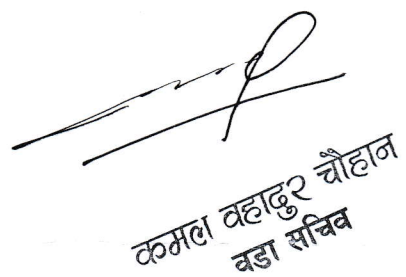 कमल वहादुर चौहान
वडा सचिव